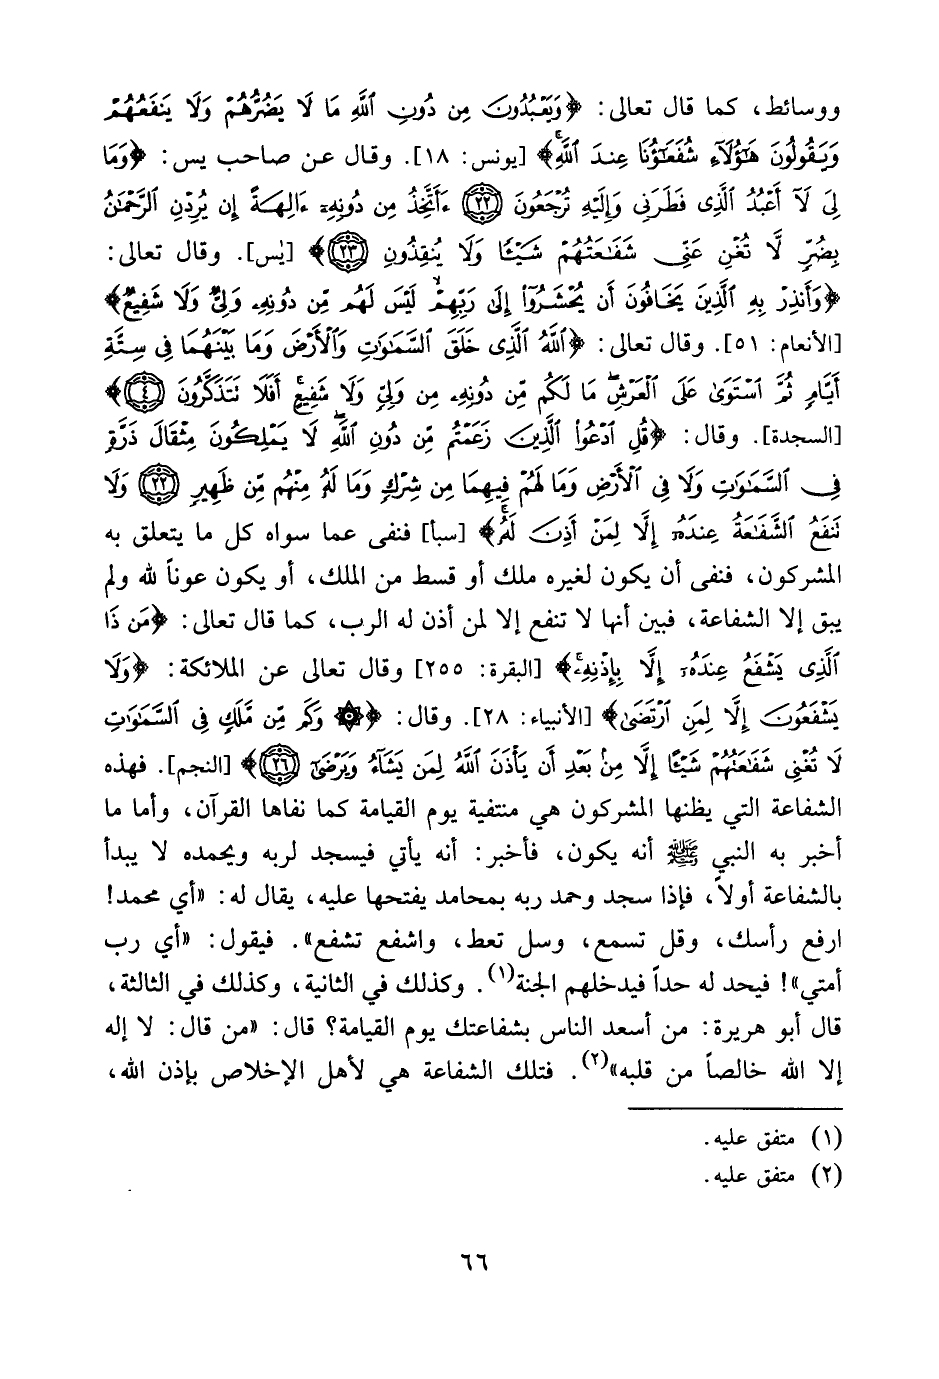 ووسائط، كما قال تعالى: ﴿وَيَعْبُدُونَ مِن دُونِ ٱللَّهِ مَا لَا يَضُرُّهُمْ وَلَا يَنفَعُهُمْ
وَيَقُولُونَ هَٰٓؤُلَآءِ شُفَعَٰٓؤُنَا عِندَ ٱللَّهِۚ﴾ [يونس: ١٨]. وقال عن صاحب يس: ﴿وَمَا
لِىَ لَآ أَعْبُدُ ٱلَّذِى فَطَرَنِى وَإِلَيْهِ تُرْجَعُونَ ﴿٢٢﴾ ءَأَتَّخِذُ مِن دُونِهِۦٓ ءَالِهَةً إِن يُرِدْنِ ٱلرَّحْمَٰنُ
بِضُرٍّ لَّا تُغْنِ عَنِّى شَفَٰعَتُهُمْ شَيْـًٔا وَلَا يُنقِذُونِ ﴿٢٣﴾﴾ [يٰس]. وقال تعالى:
﴿وَأَنذِرْ بِهِ ٱلَّذِينَ يَخَافُونَ أَن يُحْشَرُوٓا۟ إِلَىٰ رَبِّهِمْۙ لَيْسَ لَهُم مِّن دُونِهِۦ وَلِىٌّ وَلَا شَفِيعٌ﴾
[الأنعام: ٥١]. وقال تعالى: ﴿ٱللَّهُ ٱلَّذِى خَلَقَ ٱلسَّمَٰوَٰتِ وَٱلْأَرْضَ وَمَا بَيْنَهُمَا فِى سِتَّةِ
أَيَّامٍ ثُمَّ ٱسْتَوَىٰ عَلَى ٱلْعَرْشِۖ مَا لَكُم مِّن دُونِهِۦ مِن وَلِىٍّ وَلَا شَفِيعٍۚ أَفَلَا تَتَذَكَّرُونَ ﴿٤﴾﴾
[السجدة]. وقال: ﴿قُلِ ٱدْعُوا۟ ٱلَّذِينَ زَعَمْتُم مِّن دُونِ ٱللَّهِۖ لَا يَمْلِكُونَ مِثْقَالَ ذَرَّةٍ
فِى ٱلسَّمَٰوَٰتِ وَلَا فِى ٱلْأَرْضِ وَمَا لَهُمْ فِيهِمَا مِن شِرْكٍ وَمَا لَهُۥ مِنْهُم مِّن ظَهِيرٍ ﴿٢٢﴾ وَلَا
تَنفَعُ ٱلشَّفَٰعَةُ عِندَهُۥٓ إِلَّا لِمَنْ أَذِنَ لَهُۥۚ﴾ [سبأ] فنفى عما سواه كل ما يتعلق به
المشركون، فنفى أن يكون لغيره ملك أو قسط من الملك، أو يكون عوناً لله ولم
يبق إلا الشفاعة، فبين أنها لا تنفع إلا لمن أذن له الرب، كما قال تعالى: ﴿مَن ذَا
ٱلَّذِى يَشْفَعُ عِندَهُۥٓ إِلَّا بِإِذْنِهِۦۚ﴾ [البقرة: ٢٥٥] وقال تعالى عن الملائكة: ﴿وَلَا
يَشْفَعُونَ إِلَّا لِمَنِ ٱرْتَضَىٰ﴾ [الأنبياء: ٢٨]. وقال: ﴿۞ وَكَم مِّن مَّلَكٍ فِى ٱلسَّمَٰوَٰتِ
لَا تُغْنِى شَفَٰعَتُهُمْ شَيْـًٔا إِلَّا مِنۢ بَعْدِ أَن يَأْذَنَ ٱللَّهُ لِمَن يَشَآءُ وَيَرْضَىٰٓ ﴿٢٦﴾﴾ [النجم]. فهذه
الشفاعة التي يظنها المشركون هي منتفية يوم القيامة كما نفاها القرآن، وأما ما
أخبر به النبي ﷺ أنه يكون، فأخبر: أنه يأتي فيسجد لربه ويحمده لا يبدأ
بالشفاعة أولاً، فإذا سجد وحمد ربه بمحامد يفتحها عليه، يقال له: «أي محمد!
ارفع رأسك، وقل تسمع، وسل تعط، واشفع تشفع». فيقول: «أي رب
أمتي»! فيحد له حداً فيدخلهم الجنة(١). وكذلك في الثانية، وكذلك في الثالثة،
قال أبو هريرة: من أسعد الناس بشفاعتك يوم القيامة؟ قال: «من قال: لا إله
إلا الله خالصاً من قلبه»(٢). فتلك الشفاعة هي لأهل الإخلاص بإذن الله،
(١) متفق عليه.
(٢) متفق عليه.
٦٦